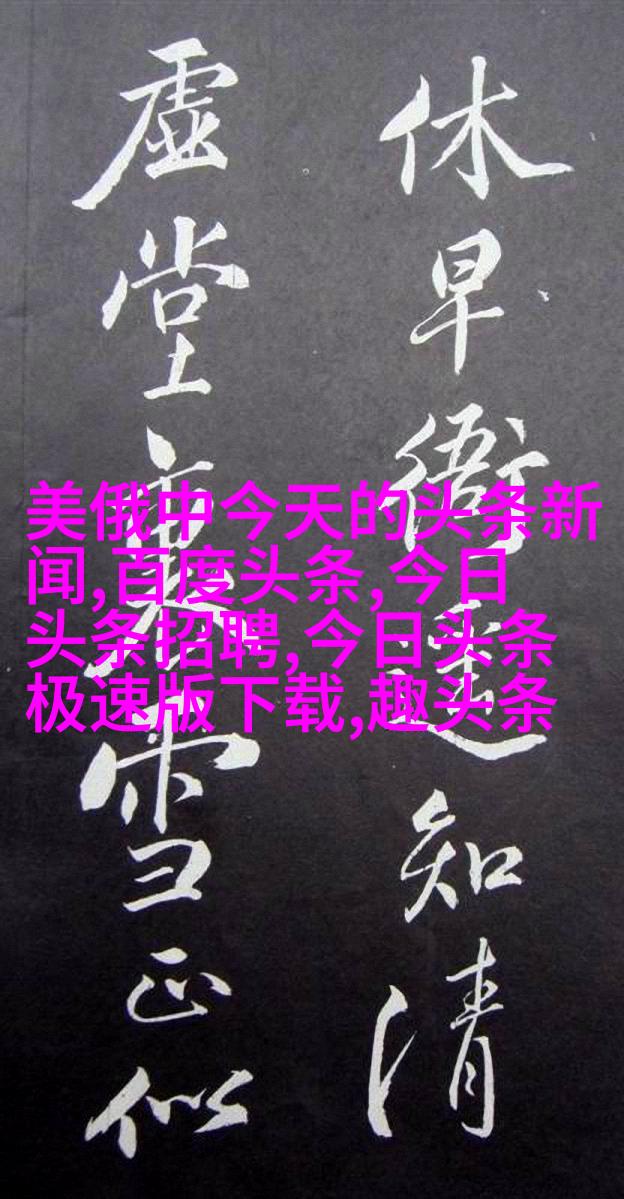 休早衙遥知清
虚堂裏雪正似
美俄中今天的头条新
闻,百度头条,今日
头条招聘,今日头条
极速版下载,趣头条